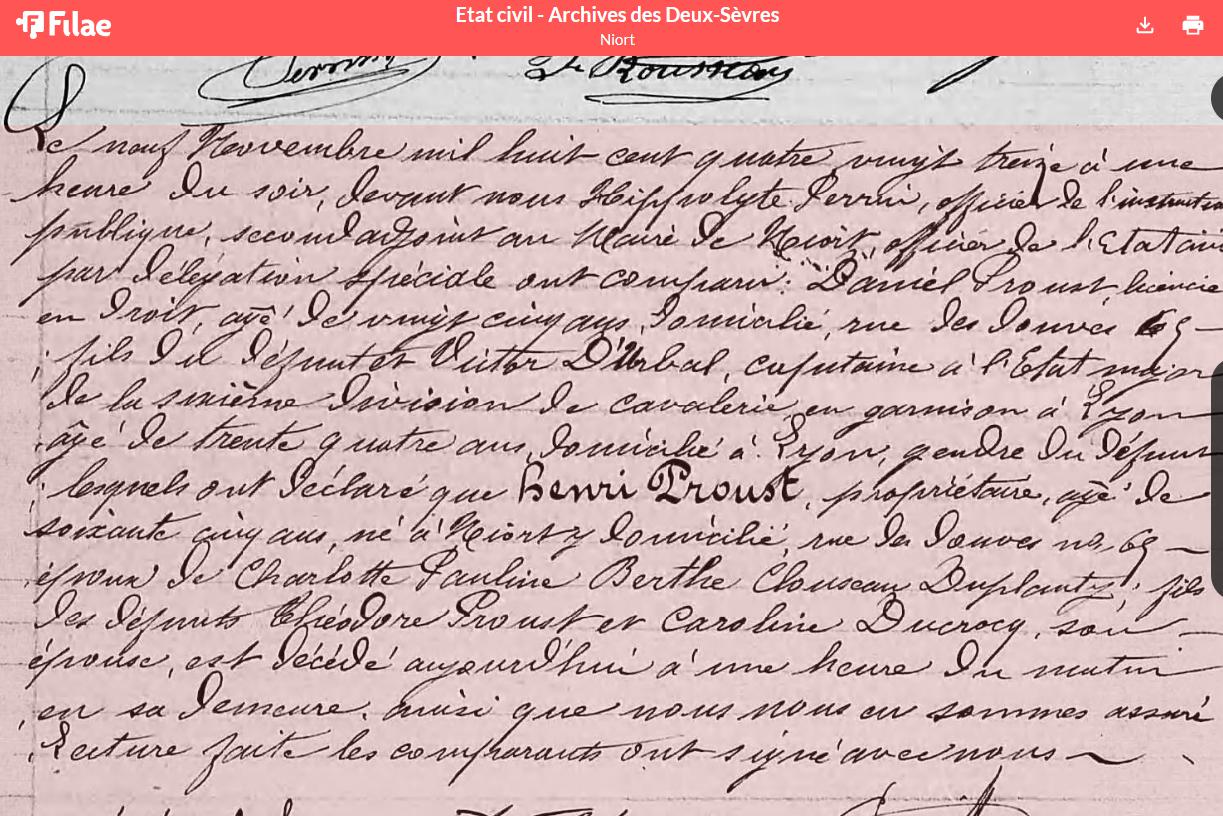 Filae
Etat civil - Archives des Deux-Sèvres
Niort
Perrin
Rousseau
Le neuf Novembre mil huit cent quatre vingt treize à une
heure du soir, devant nous Hippolyte Perrin, officier de l'instruction
publique, second adjoint au Maire de Niort, officier de l'Etat civil
par délégation spéciale ont comparu : Daniel Proust, licencié
en Droit, agé de vingt cinq ans, domicilié, rue des douves 69 –
; fils du défunt et Victor D'Urbal, capitaine à l'Etat major
de la sixième division de cavalerie en garnison à Lyon
âgé de trente quatre ans, domicilié à Lyon, gendre du défunt
lesquels ont déclaré que henri Proust, propriétaire, agé de
soixante cinq ans, né à Niort y domicilié, rue des douves no 69 –
époux de Charlotte Pauline Berthe Clouseau Duplanty ; fils
des défunts théodore Proust et Caroline Ducrocq, son –
épouse, est décédé aujourd'hui à une heure du matin
en sa demeure. ainsi que nous nous en sommes assuré
Lecture faite les comparants ont signé avec nous –